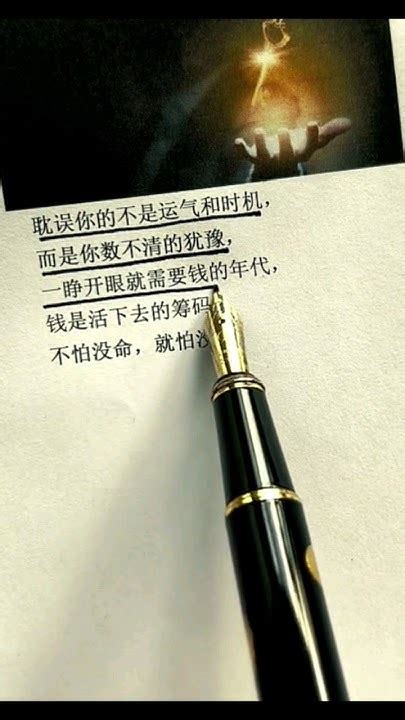 耽误你的不是运气和时机，
而是你数不清的犹豫，
一睁开眼就需要钱的年代，
钱是活下去的筹码
不怕没命，就怕没